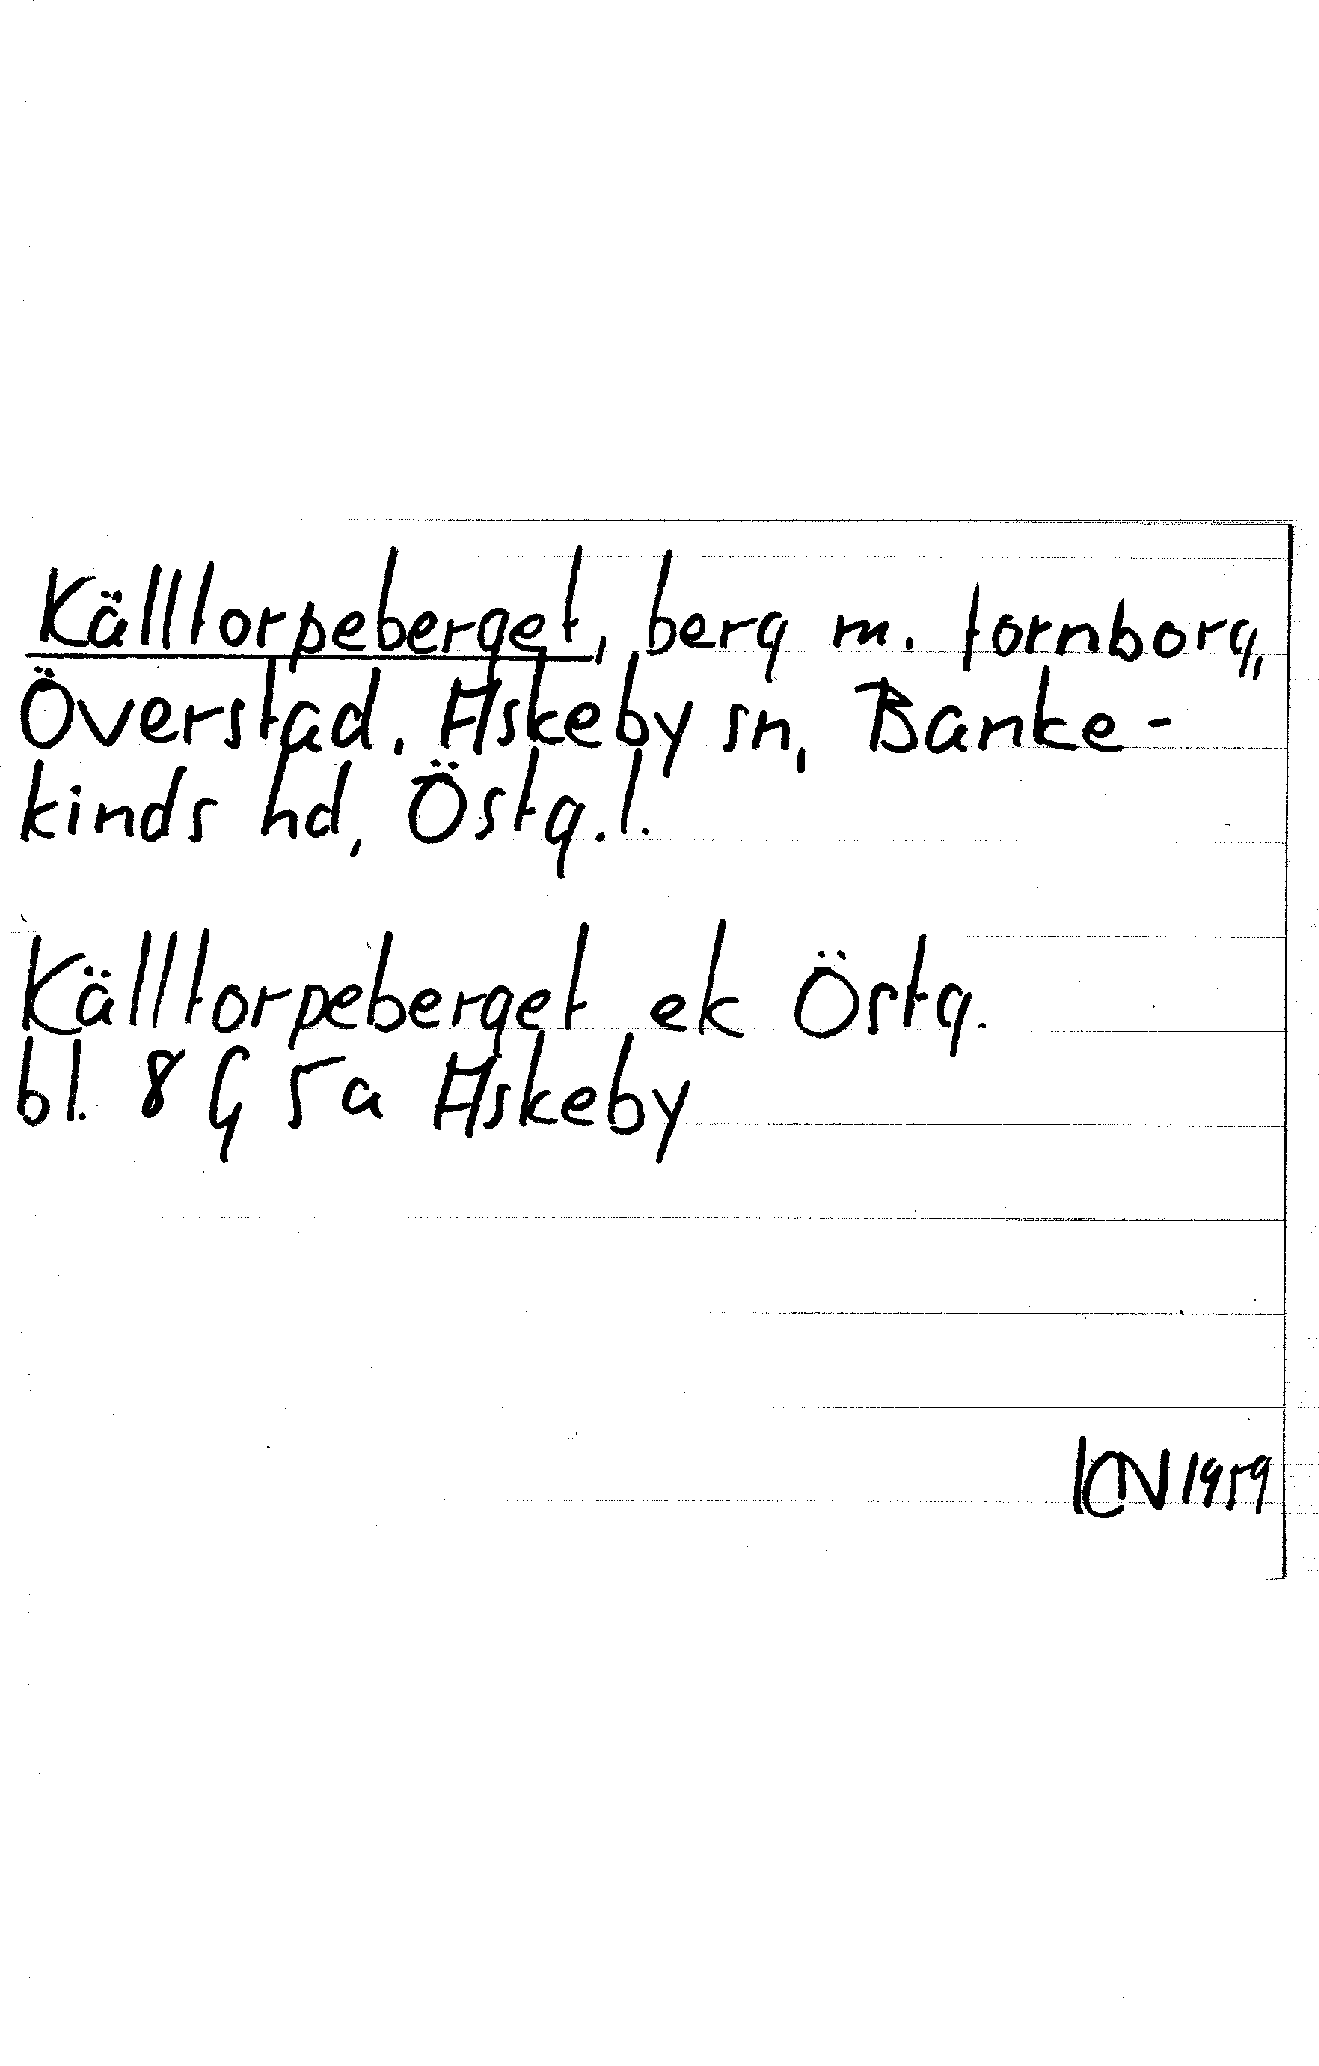 Källtorpeberget, berg m. fornborg,
Överstad, Askeby sn, Banke-
kinds hd, Östg.l.
Källtorpeberget ek Östg.
bl. 8 G 5a Askeby
KN 1959